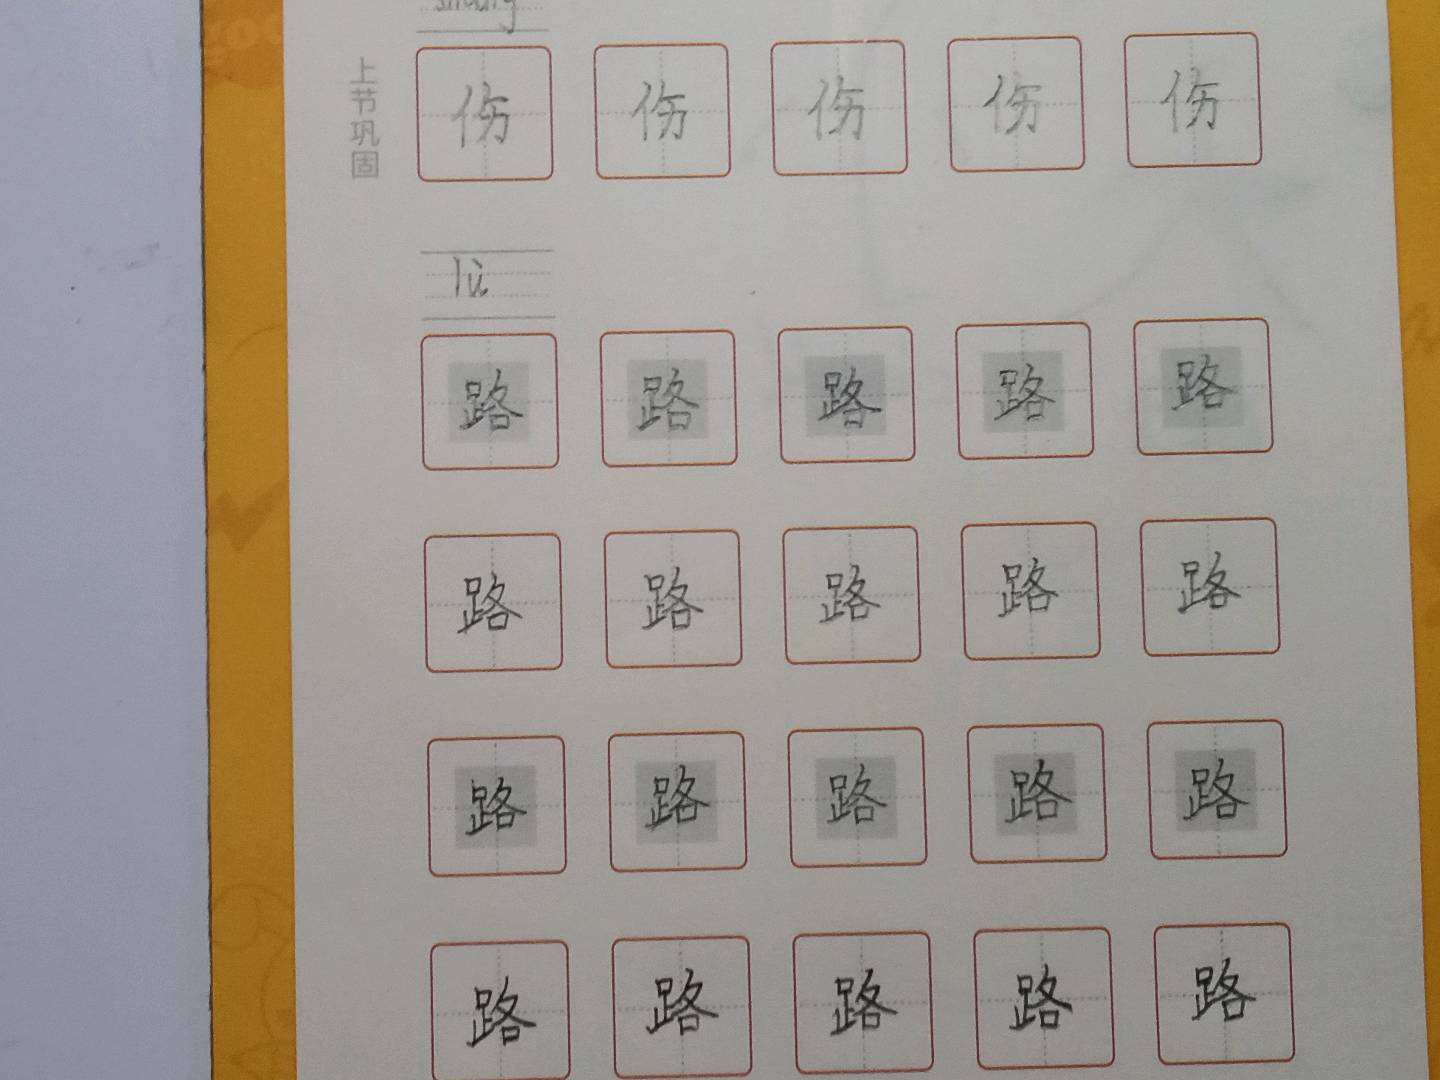 上节巩固
伤 伤 伤 伤 伤
lù
路 路 路 路 路
路 路 路 路 路
路 路 路 路 路
路 路 路 路 路